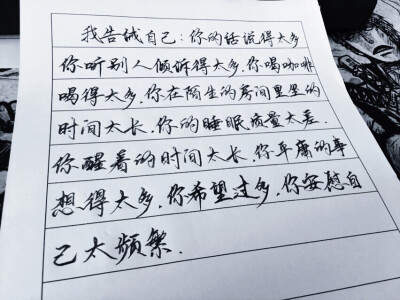 我告诫自己：你的话说得太多
你听别人倾诉得太多，你喝咖啡
喝得太多，你在陌生的房间里坐的
时间太长，你的睡眠质量太差，
你醒着的时间太长，你平庸的事
想得太多，你希望过多，你安慰自
己太频繁．